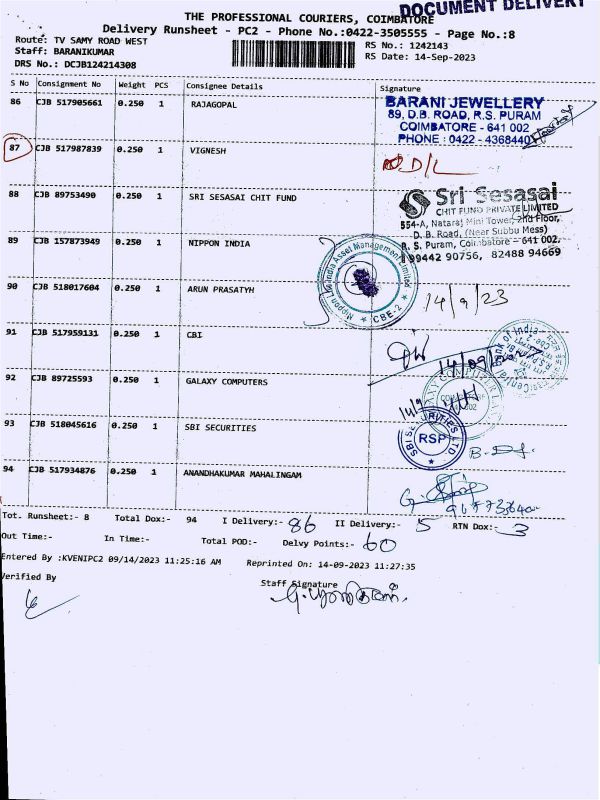 DOCUMENT DELIVERY
THE PROFESSIONAL COURIERS, COIMBATORE
Delivery Runsheet - PC2 - Phone No.:0422-3505555 - Page No.:8
Route: TV SAMY ROAD WEST
RS No.: 1242143
Staff: BARANIKUMAR
RS Date: 14-Sep-2023
DRS No.: DCJB124214308
S No Consignment No Weight PCS Consignee Details Signature
86 CJB 517905661 0.250 1 RAJAGOPAL
BARANI JEWELLERY
89, D.B. ROAD, R.S. PURAM
COIMBATORE - 641 002
PHONE : 0422 - 4368440
87 CJB 517987839 0.250 1 VIGNESH
D/L
88 CJB 89753490 0.250 1 SRI SESASAI CHIT FUND
Sri Sesasai
CHIT FUND PRIVATE LIMITED
554-A, Nataraj Mini Tower, 2nd Floor,
D. B. Road, (Near Subbu Mess)
R. S. Puram, Coimbatore - 641 002.
99442 90756, 82488 94669
89 CJB 157873949 0.250 1 NIPPON INDIA
Nippon Life India Asset Management Limited
CBE-2
90 CJB 518017604 0.250 1 ARUN PRASATYH
14/9/23
91 CJB 517959131 0.250 1 CBI
14/09/
92 CJB 89725593 0.250 1 GALAXY COMPUTERS
14/9
93 CJB 518045616 0.250 1 SBI SECURITIES
SBI SECURITIES LTD
RSP
94 CJB 517934876 0.250 1 ANANDHAKUMAR MAHALINGAM
Tot. Runsheet:- 8 Total Dox:- 94 I Delivery:- 86 II Delivery:- 5 RTN Dox:- 3
Out Time:- In Time:- Total POD:- Delvy Points:- 60
Entered By :KVENIPC2 09/14/2023 11:25:16 AM Reprinted On: 14-09-2023 11:27:35
Verified By Staff Signature